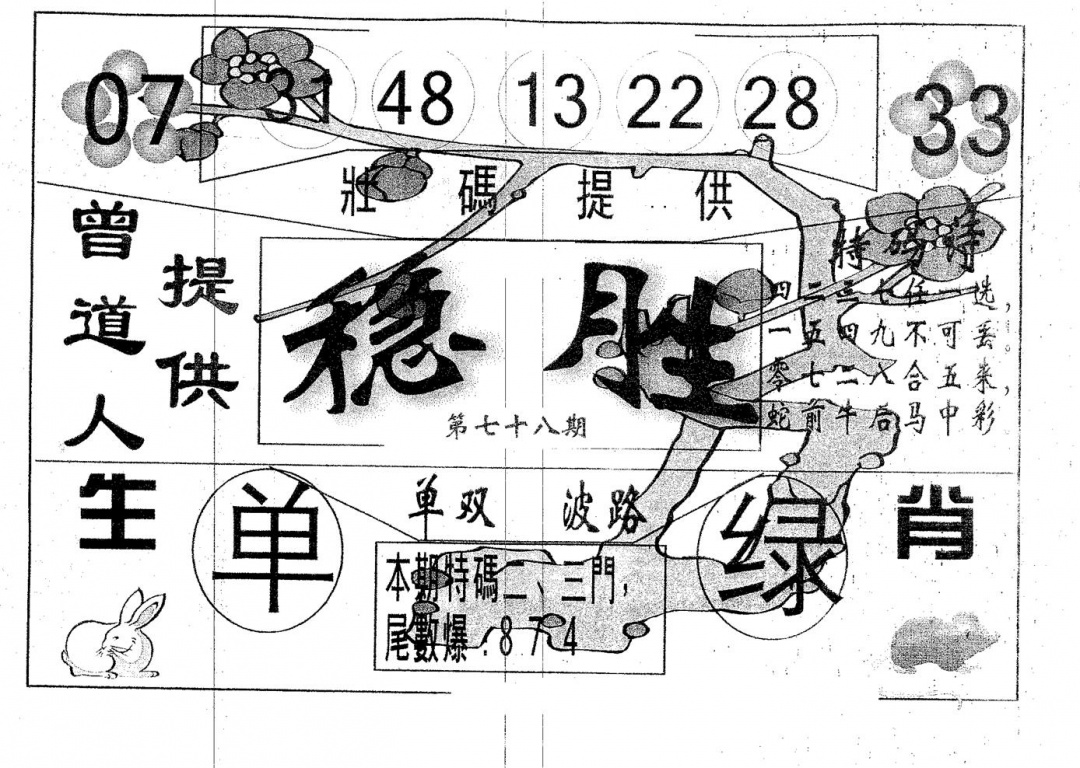 07 31 48 13 22 28 33
壯碼提供
曾道人
提供
稳胜
第七十八期
特码诗
四二三七任一选，
一五四九不可丢。
零七二八合五来，
蛇前牛后马中彩
生肖
单
单双 波路
绿
本期特碼二、三門，
尾數爆：8 7 4